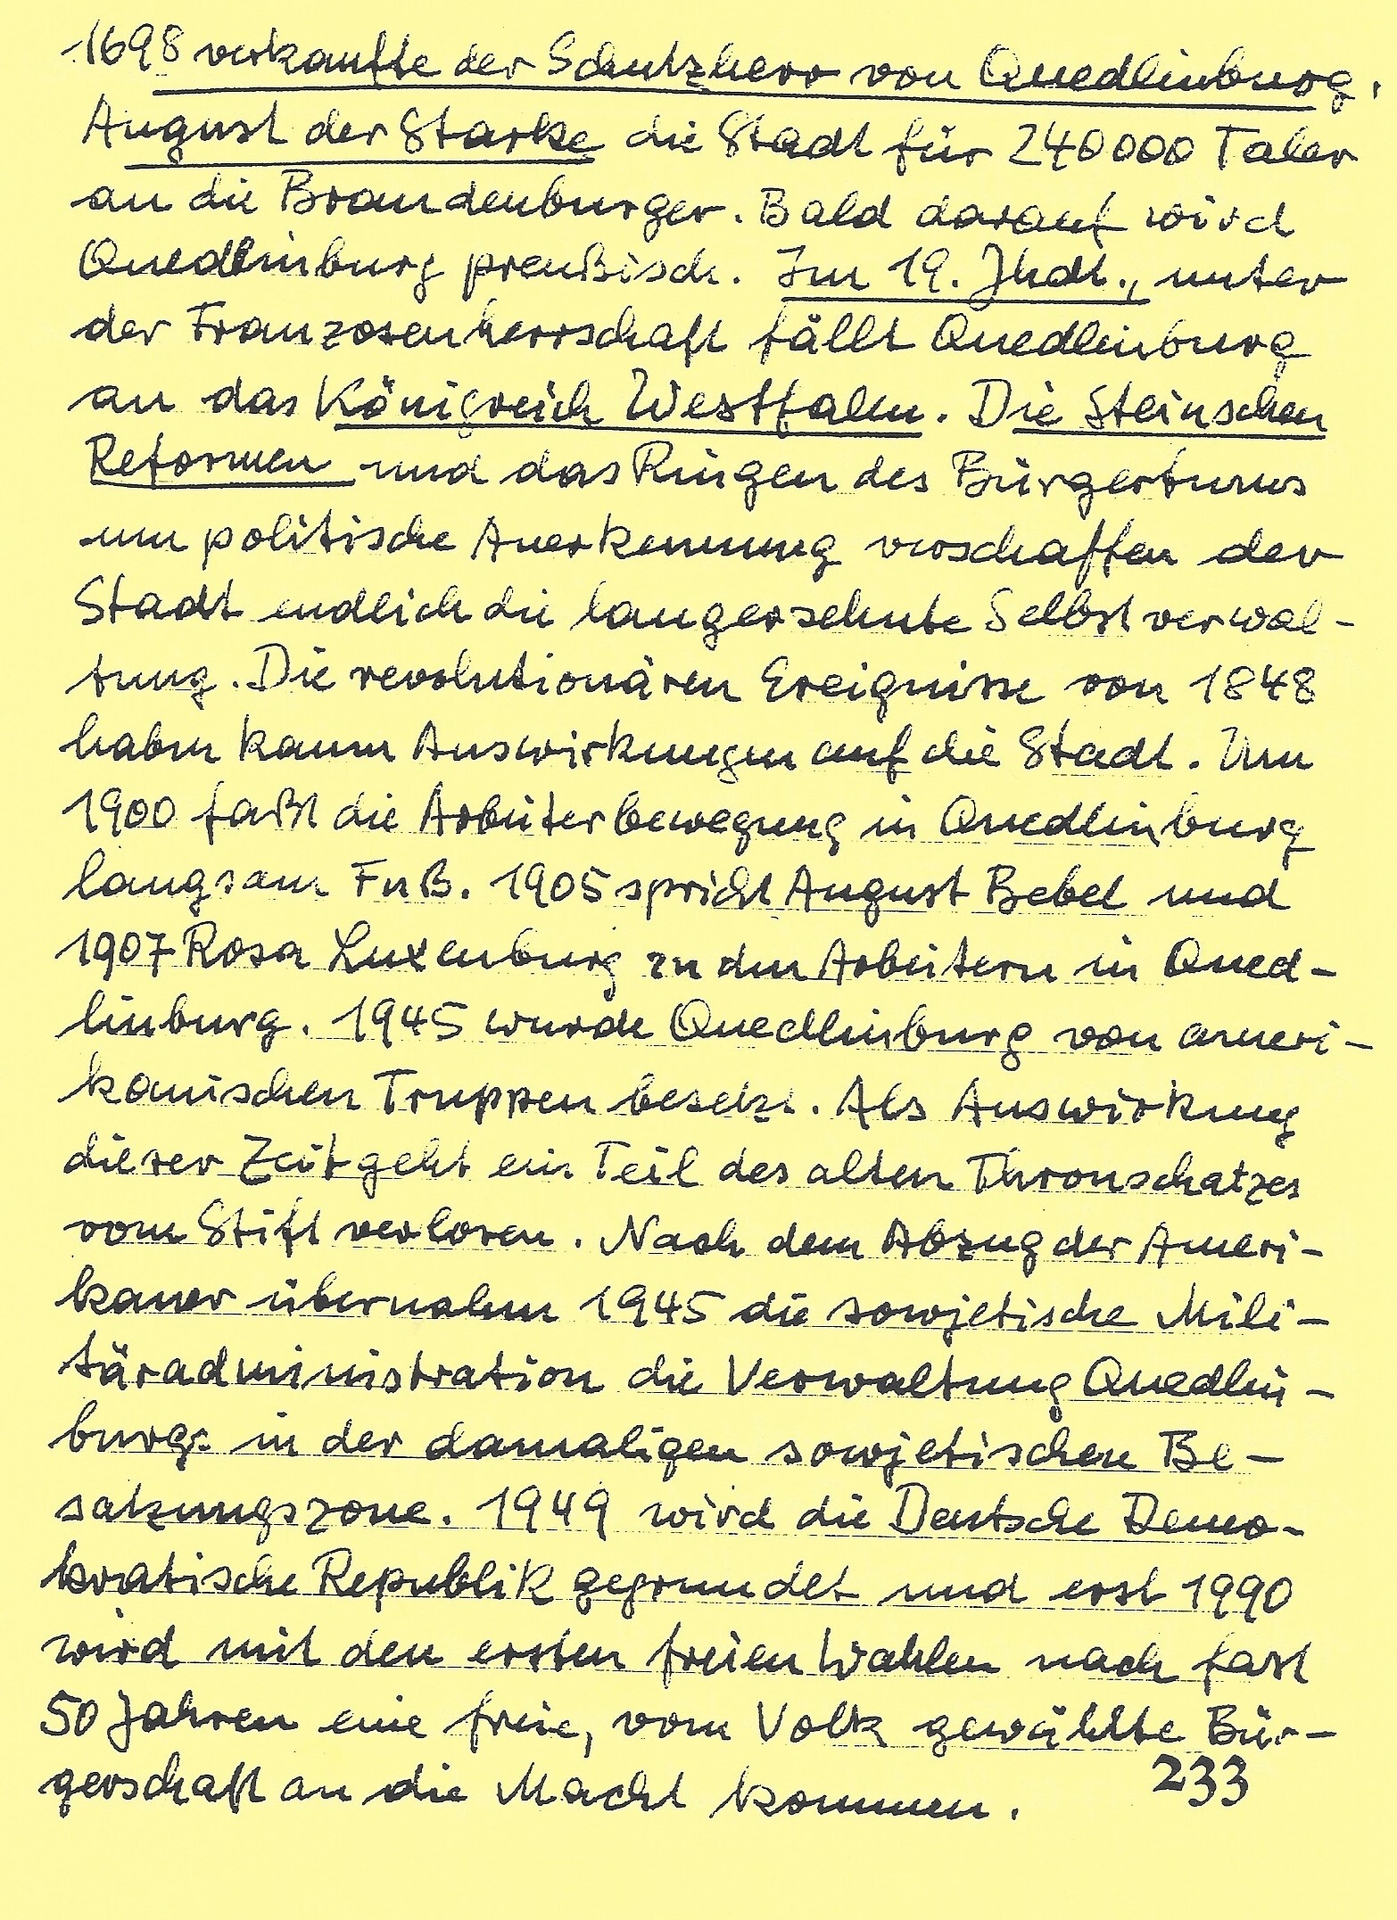 1698 verkaufte der Schutzherr von Quedlinburg,
August der Starke die Stadt für 240000 Taler
an die Brandenburger. Bald darauf wird
Quedlinburg preußisch. Im 19. Jhdt., unter
der Franzosenherrschaft fällt Quedlinburg
an das Königreich Westfalen. Die Steinschen
Reformen und das Ringen des Bürgertums
um politische Anerkennung verschaffen der
Stadt endlich die langersehnte Selbstverwal-
tung. Die revolutionären Ereignisse von 1848
haben kaum Auswirkungen auf die Stadt. Um
1900 faßt die Arbeiterbewegung in Quedlinburg
langsam Fuß. 1905 spricht August Bebel und
1907 Rosa Luxenburg zu den Arbeitern in Qued-
linburg. 1945 wurde Quedlinburg von ameri-
kanischen Truppen besetzt. Als Auswirkung
dieser Zeit geht ein Teil des alten Thronschatzes
vom Stift verloren. Nach dem Abzug der Ameri-
kaner übernahm 1945 die sowjetische Mili-
täradministration die Verwaltung Quedlin-
burgs in der damaligen sowjetischen Be-
satzungszone. 1949 wird die Deutsche Demo-
kratische Republik gegrundet und erst 1990
wird mit den ersten freien Wahlen nach fast
50 Jahren eine freie, vom Volk gewählte Bür-
gerschaft an die Macht kommen.
233